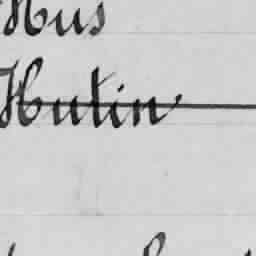 Hus
Hutin